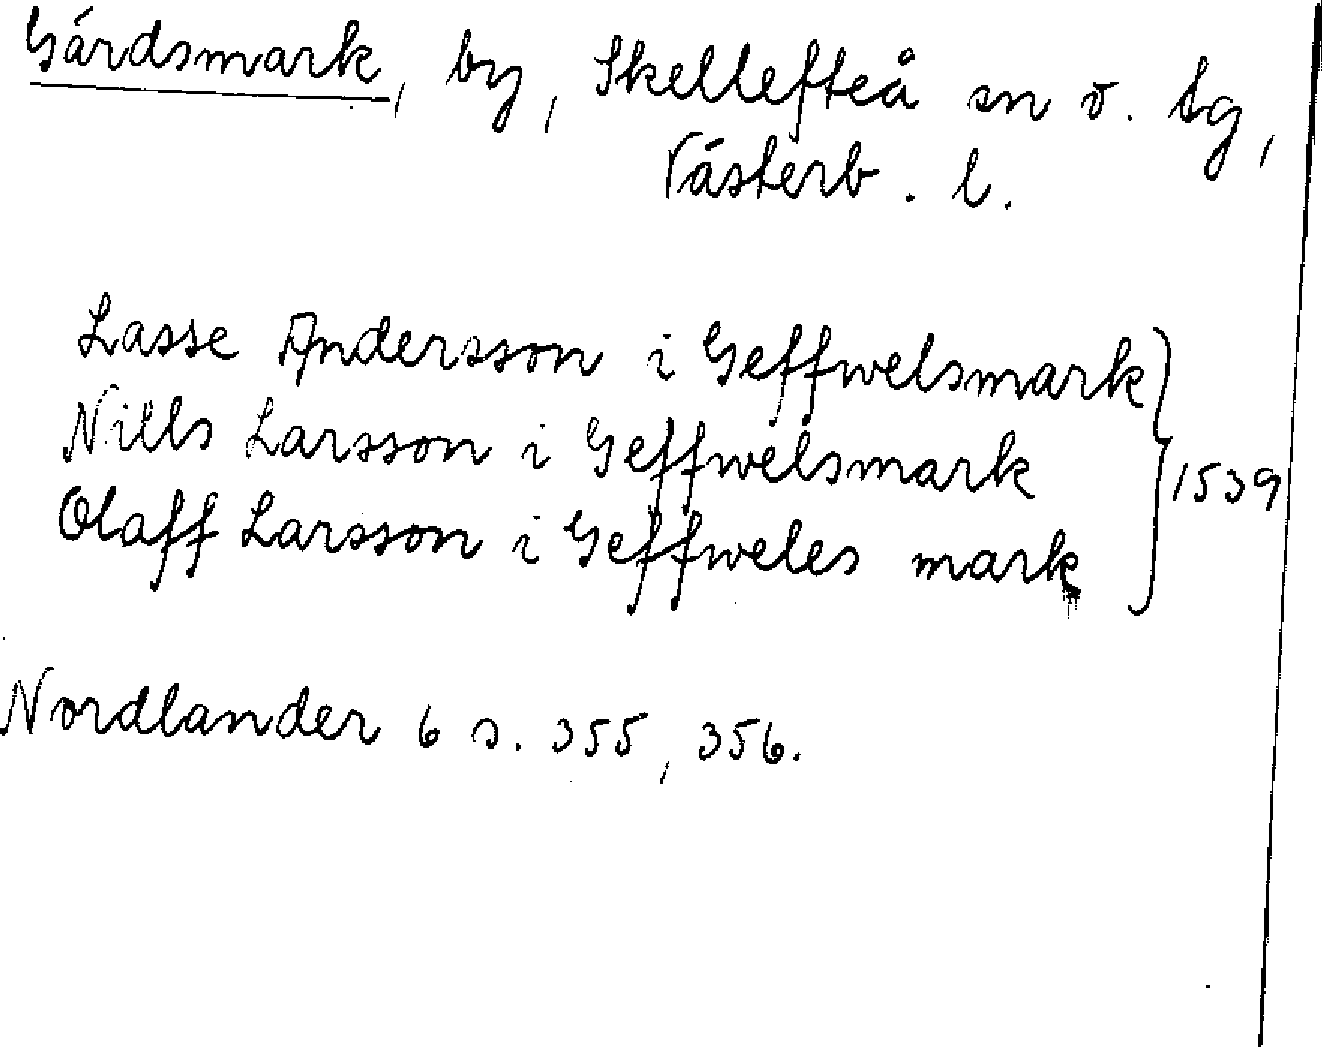 Gärdsmark, by, Skellefteå sn o. tg,
Västerb. l.
Lasse Andersson i Geffwelsmark
Nills Larsson i Geffwelsmark
Olaff Larsson i Geffweles mark
1539
Nordlander 6 s. 355, 356.